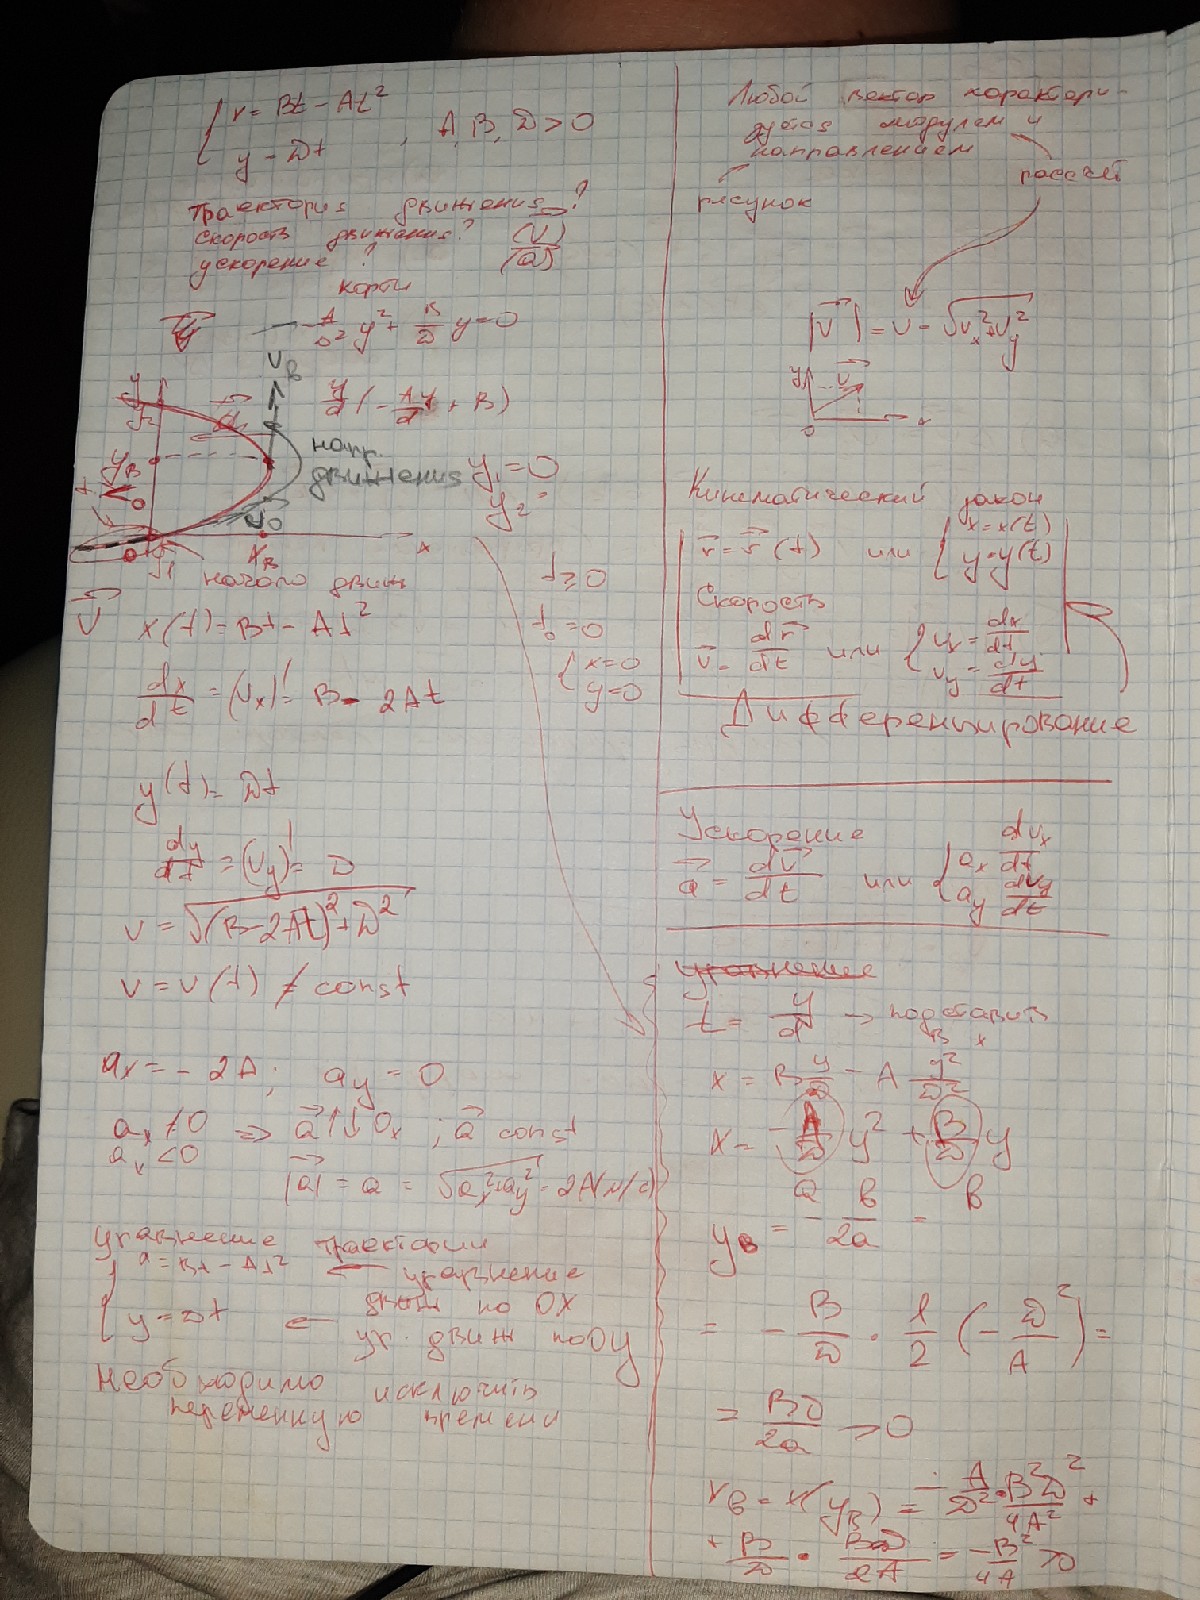 x = Bt - At²
y - Dt , A, B, D > 0
Траектория движения - ?
Скорость движения? (V)
ускорение ? (a)
корни
- A/D² y² + B/D y = 0
y/d (- Ay/d + B)
y
y₂
V_B
a
напр.
движения
y_B
y₁ = 0
y₂ =
V₀
x
0
y₁
x_B
начало движ
t ≥ 0
V
x(t) = Bt - At²
t₀ = 0
x = 0
y = 0
dx/dt = (Vx)' = B - 2At
y(t) = Dt
dy/dt = (Vy)' = D
v = √((B-2At)² + D²)
v = v(t) ≠ const
ax = - 2A; ay = 0
ax ≠ 0 => a ↑↓ Ox ; a const
ax < 0
|a| = a = √(ax² + ay²) = 2A (м/с)
уравнение траектории
x = Bt - At² ← уравнение
движ по OX
y = Dt ← ур. движ по Oy
необходимо исключить
переменную времени
Любой вектор характери-
зуется модулем и
направлением
рассчёт
рисунок
|V| = v - √(vx² + vy²)
y
v
0
x
Кинематический закон
r = r (t) или x = x(t)
y = y(t)
Скорость
v - dr/dt или vx = dx/dt
vy = dy/dt
Дифференцирование
Ускорение
a = dv/dt или ax dvx/dt
ay dvy/dt
уравнение
t = y/d → подставить
в x
x = B y/D - A y²/D²
x = - A/D² y² + B/D y
a в
y_B = - B/2a =
= - B/D · 1/2 (- D²/A) =
= BD/2a > 0
x_B = x(y_B) = - A/D² · B²D²/4A² +
+ B/D · BD/2A = -B²/4A > 0